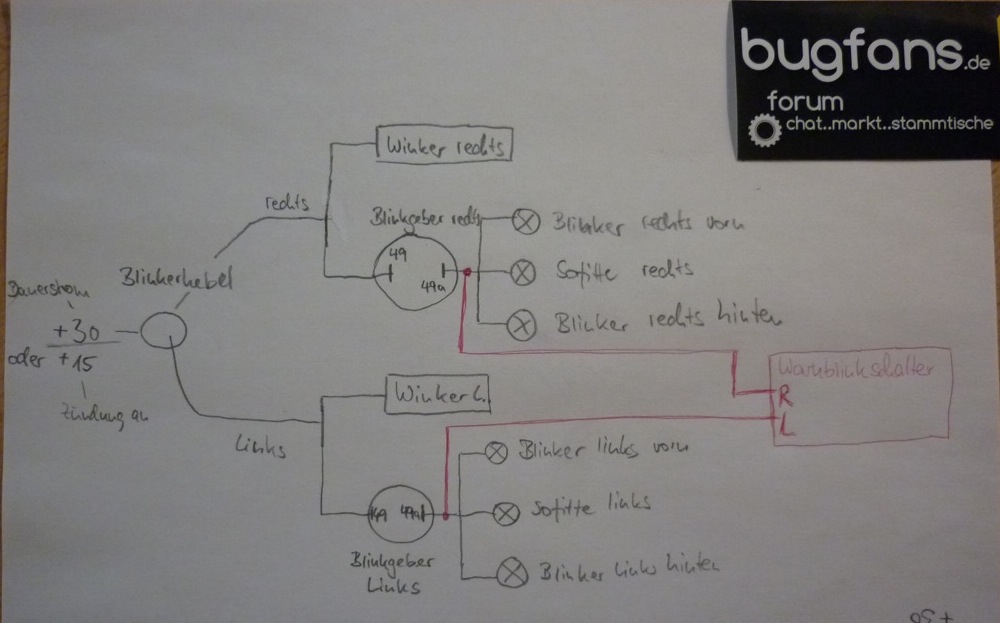 bugfans.de
forum
chat..markt..stammtische
Winker rechts
rechts
Blinkgeber rechts
49
49a
Blinker rechts vorn
Sofitte rechts
Blinker rechts hinten
Blinkerhebel
Dauerstrom
+30
oder +15
Zündung an
Warnblinkschalter
R
L
Winker L.
Links
Blinker links vorn
49
49a
Sofitte links
Blinkgeber
Links
Blinker links hinten
+30